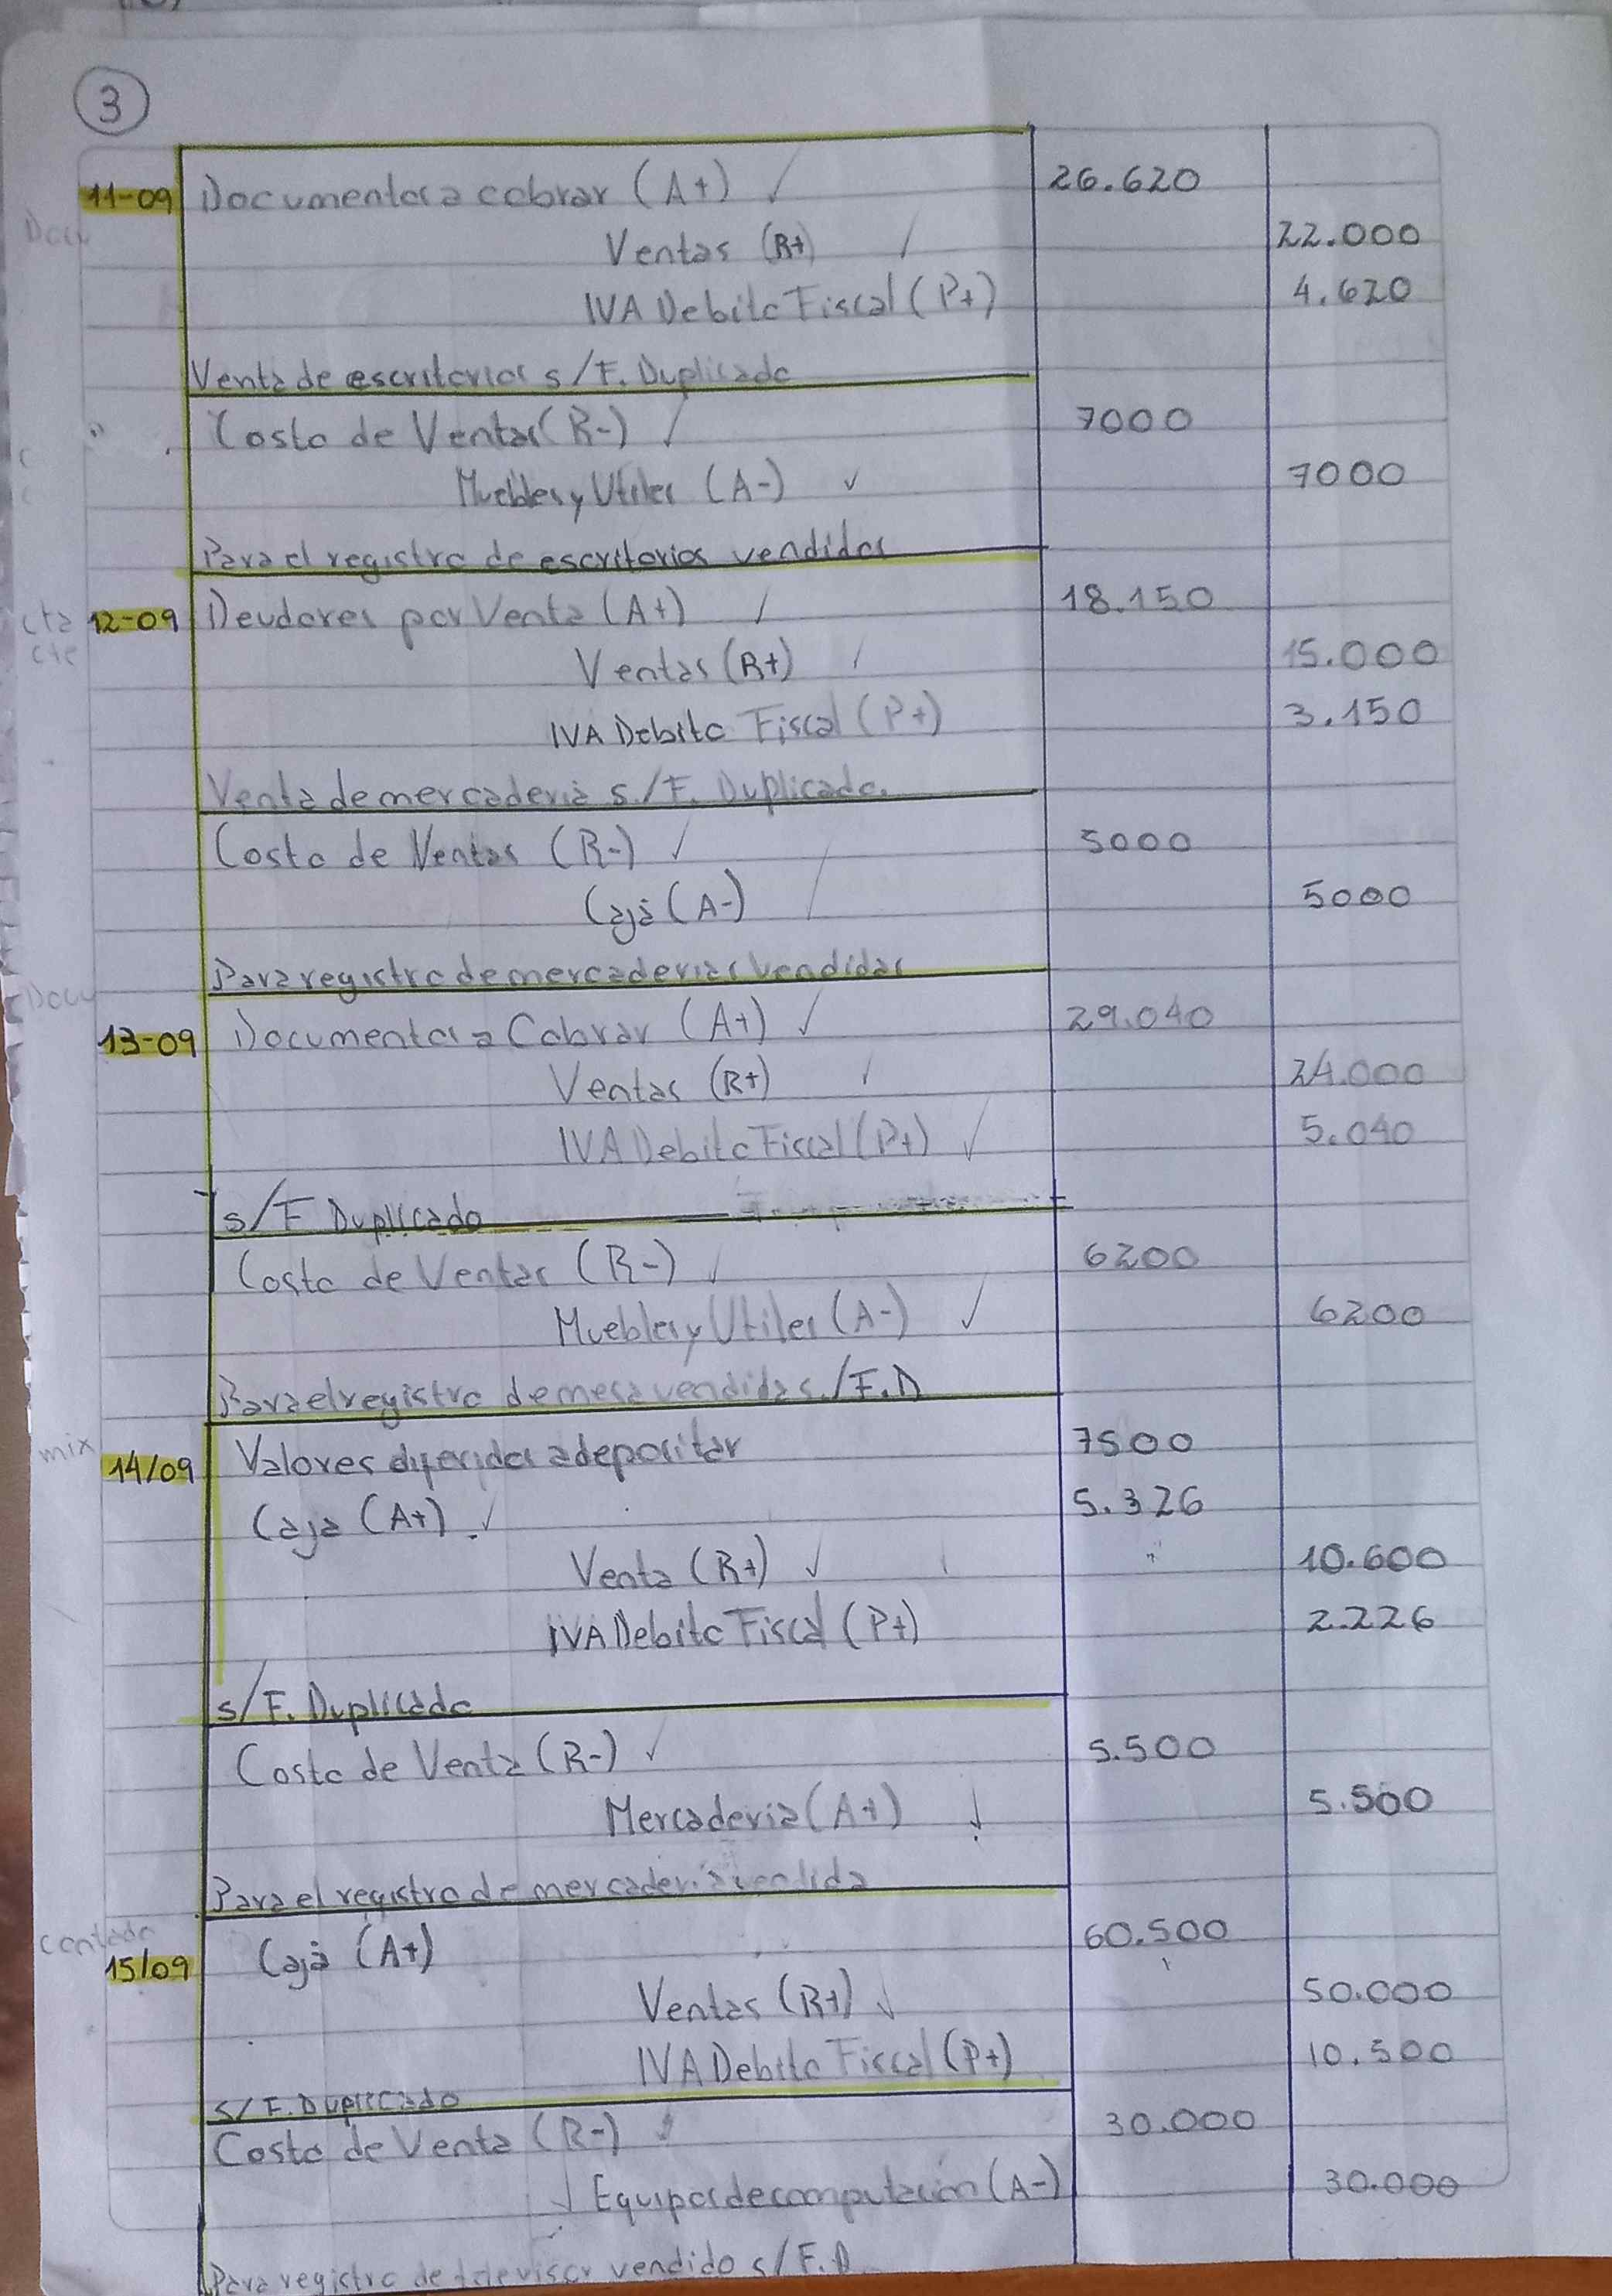 3
11-09 Documentos a cobrar (A+) ✓ 26.620
Ventas (R+) 22.000
IVA Debito Fiscal (P+) 4.620
Venta de escritorios s/F. Duplicado
Costo de Ventas (R-) ✓ 7000
Muebles y Utiles (A-) ✓ 7000
Para el registro de escritorios vendidos
cta cte 12-09 Deudores por Venta (A+) 18.150
Ventas (R+) 15.000
IVA Debito Fiscal (P+) 3.150
Venta de mercaderia s./F. Duplicado.
Costo de Ventas (R-) ✓ 5000
Caja (A-) 5000
Para registro de mercaderias vendidas
Docu
13-09 Documentos a Cobrar (A+) ✓ 29.040
Ventas (R+) 24.000
IVA Debito Fiscal (P+) ✓ 5.040
s/F Duplicado
Costo de Ventas (R-) ✓ 6200
Muebles y Utiles (A-) ✓ 6200
Para el registro de mesa vendida s./F.D
mix 14/09 Valores diferidos a depositar 7500
Caja (A+) ✓ 5.326
Venta (R+) ✓ 10.600
IVA Debito Fiscal (P+) 2.226
s/F. Duplicado
Costo de Venta (R-) ✓ 5.500
Mercaderia (A+) ✓ 5.500
Para el registro de mercaderia vendida
contado
15/09 Caja (A+) 60.500
Ventas (R+) ✓ 50.000
IVA Debito Fiscal (P+) 10.500
s/F. Duplicado
Costo de Venta (R-) 30.000
✓ Equipos de computación (A-) 30.000
Para registro de televisor vendido s/F.D.